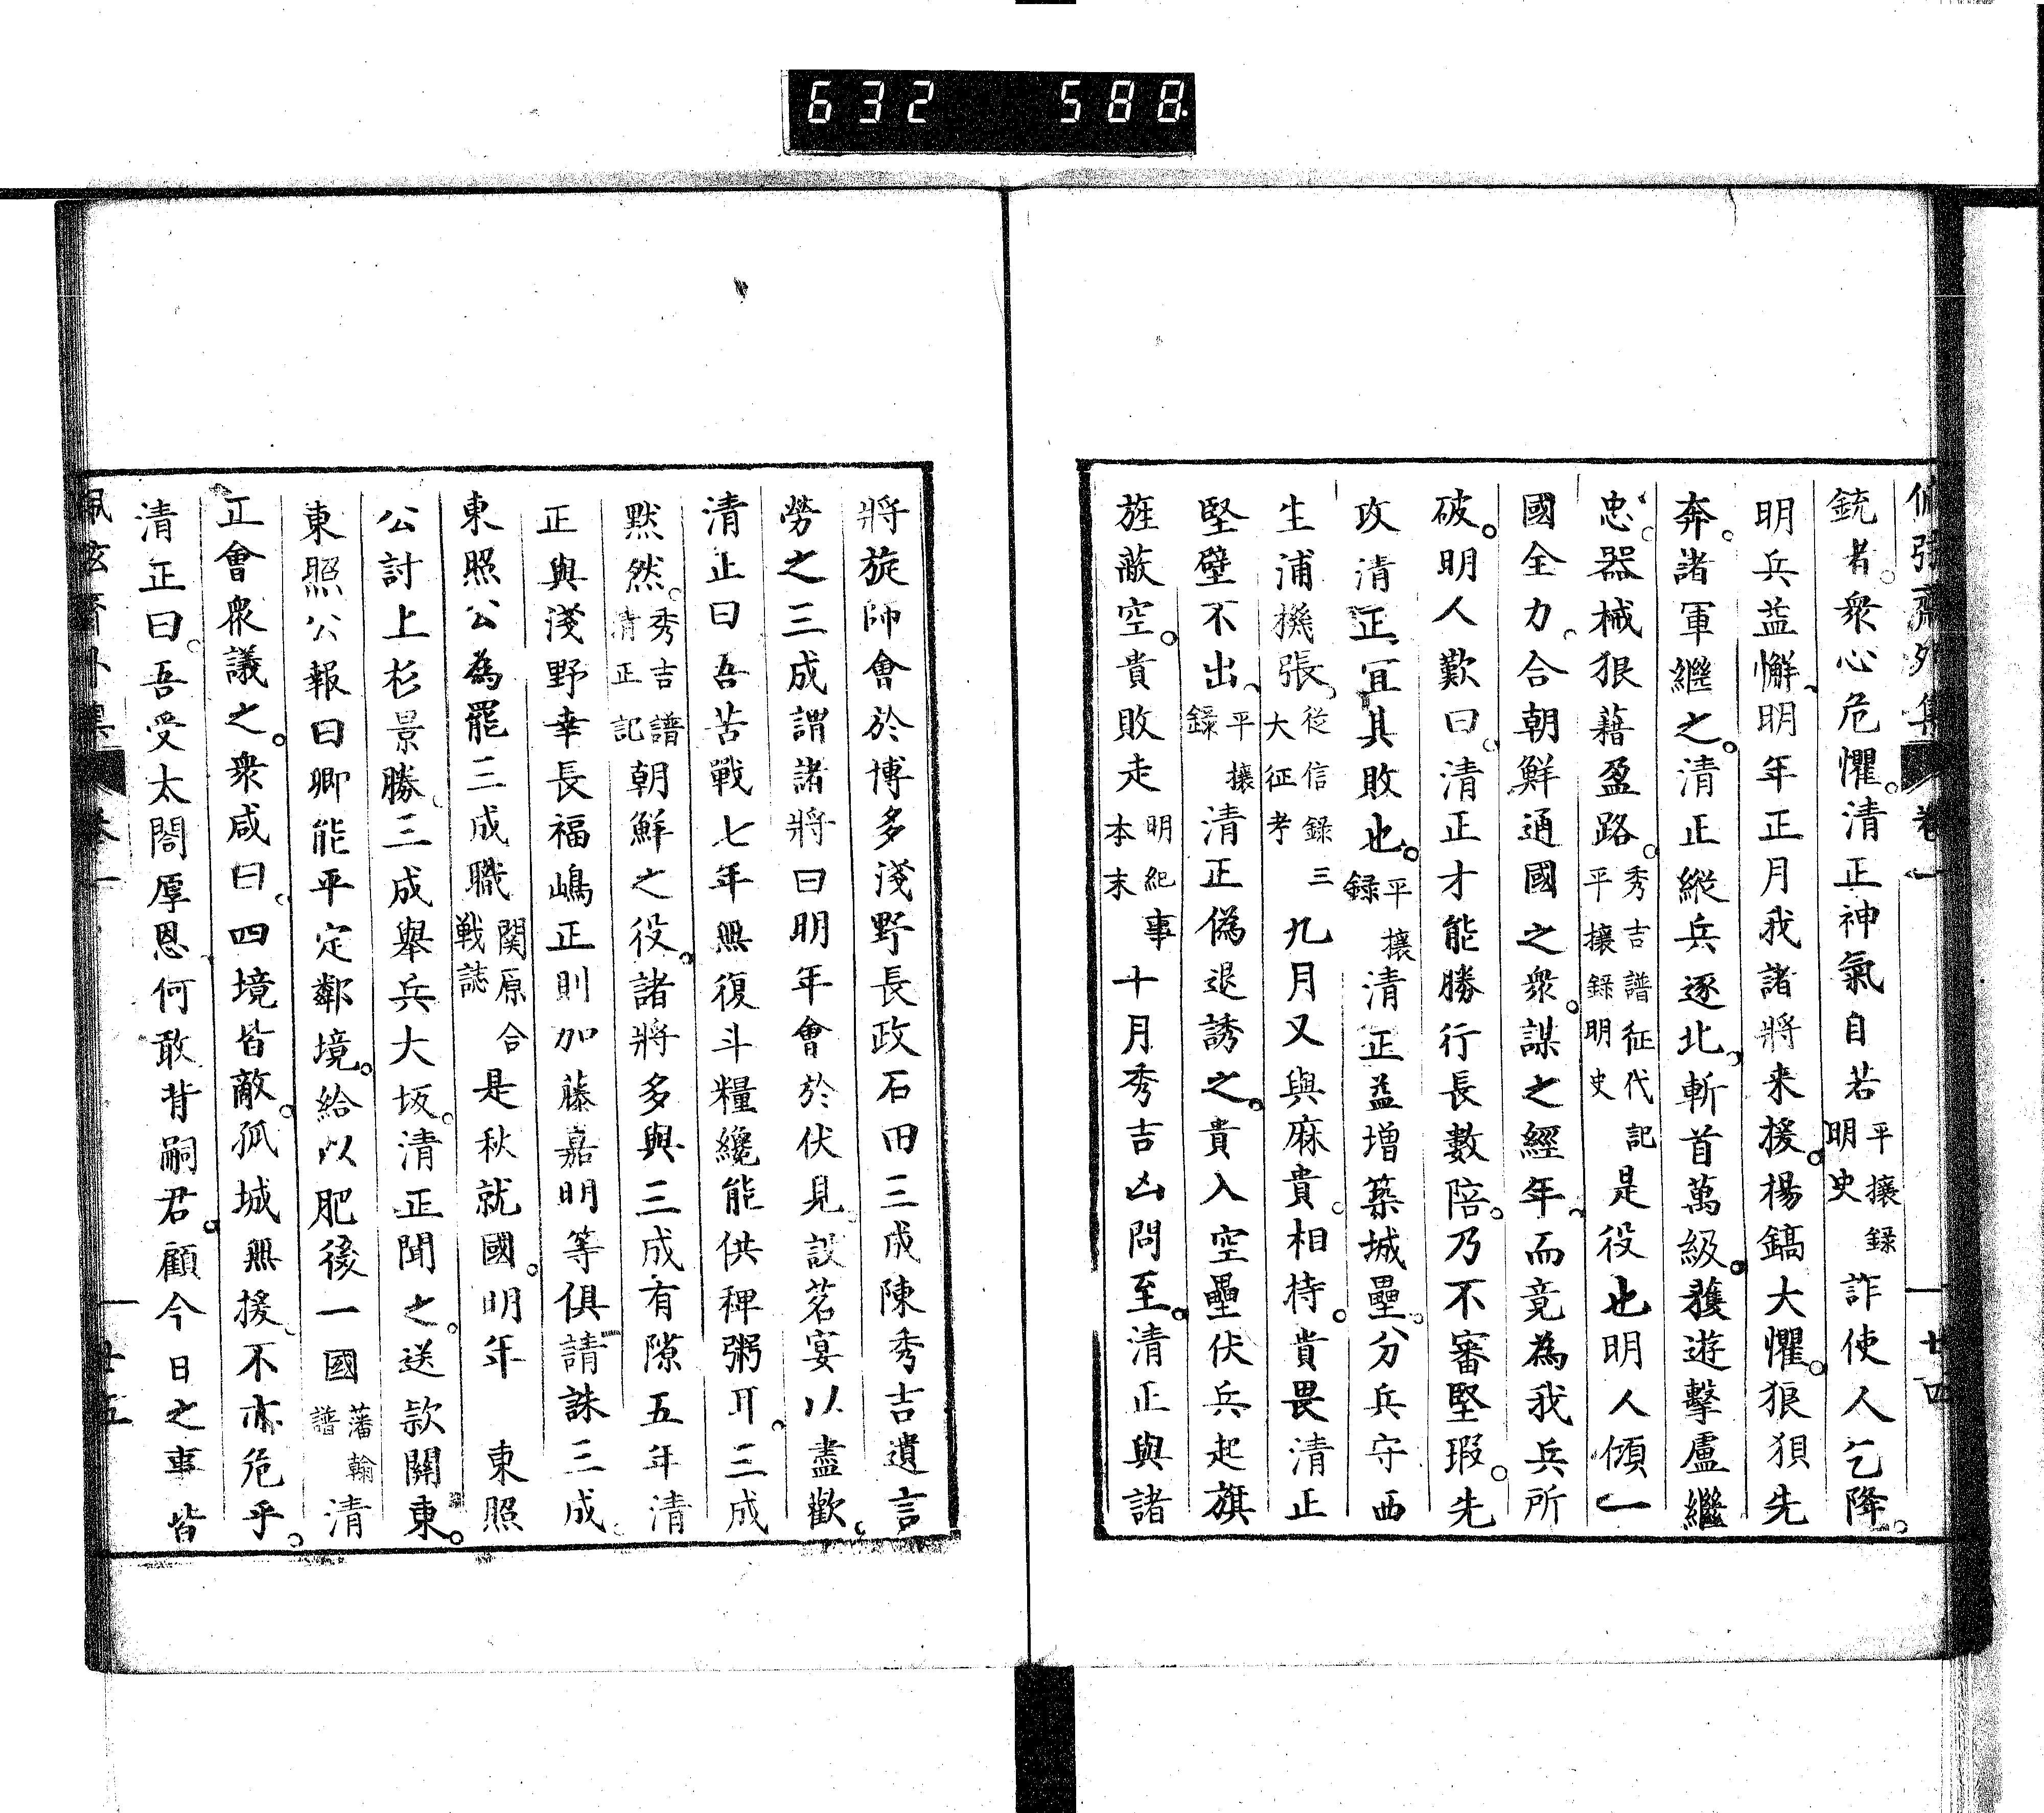 632 588
佩弦齋外集 卷一 廿四
銃者。衆心危懼。清正神氣自若平攘錄明史詐使人乞降。
明兵益懈、明年正月我諸將来援。楊鎬大懼。狼狽先
奔。諸軍繼之。清正縱兵逐北、斬首萬級。獲遊擊盧繼
忠。器械狠藉盈路。秀吉譜征代記平攘錄明史是役也明人傾一
國全力、合朝鮮通國之衆。謀之經年、而竟為我兵所
破。明人歎曰。清正才能勝行長數陪。乃不審堅瑕。先
攻清正、冝其敗也。平攘錄清正益增築城壘。分兵守西
生浦機張、從信錄三大征考九月又與麻貴。相持。貴畏清正
堅壁不出、平攘錄清正偽退誘之。貴入空壘伏兵起旗
旌蔽空。貴敗走明紀事本末十月秀吉凶問至。清正與諸
將旋師會於博多淺野長政石田三成陳秀吉遺言
勞之三成謂諸將曰明年會於伏見設茗宴以盡歡。
清正曰吾苦戰七年無復斗糧纔能供稗粥耳。三成
默然。秀吉譜清正記朝鮮之役。諸將多與三成有隙五年清
正與淺野幸長福嶋正則加藤嘉明等俱請誅三成。
東照公為罷三成職関原合戦誌是秋就國。明年　東照
公討上杉景勝、三成舉兵大坂。清正聞之。送款關東。
東照公報曰卿能平定鄰境。給以肥後一國藩翰譜清
正會衆議之。衆咸曰。四境皆敵。孤城無援、不亦危乎。
清正曰。吾受太閤厚恩。何敢背嗣君。顧今日之事皆
佩弦齋外集 卷一 廿五